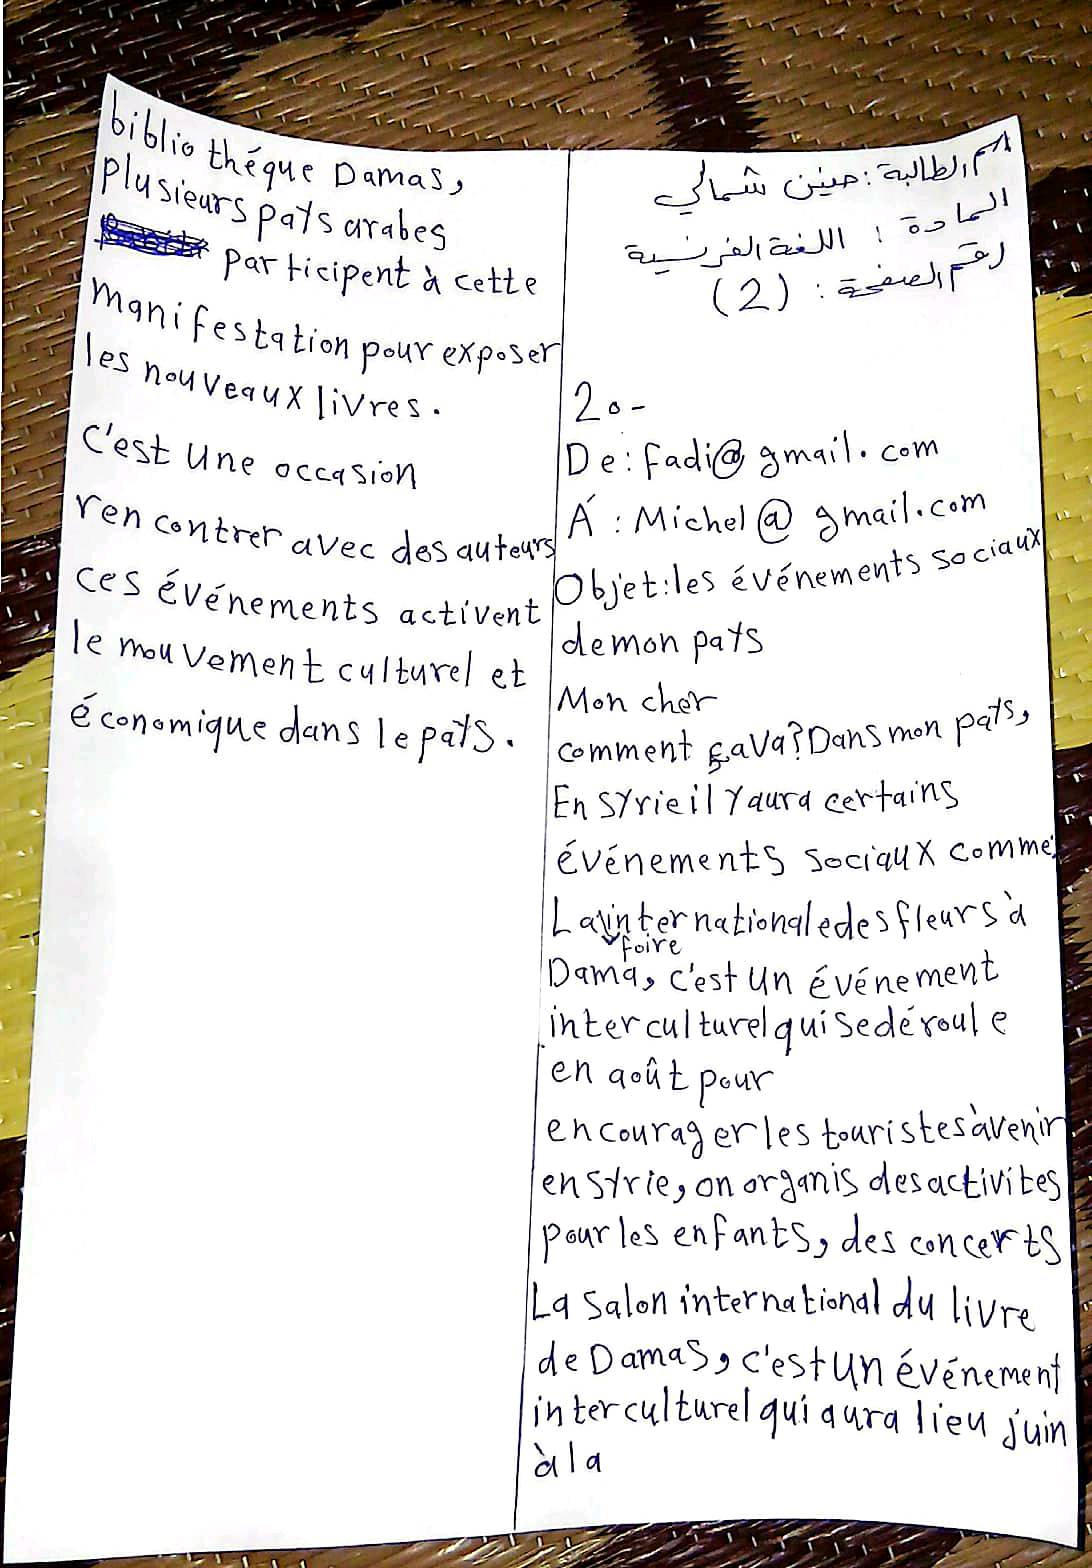 اسم الطالبة: حنين شمالي
المادة: اللغة الفرنسية
رقم الصفحة: (2)
20-
De: fadi@gmail.com
Á : Michel@gmail.com
Objet: les événements sociaux
de mon pays
Mon cher
comment ça va? Dans mon pays,
En syrie il y aura certains
événements sociaux comme:
La foire internationale des fleurs à
Dama, c'est un événement
interculturel qui se déroule
en août pour
encourager les touristes à venir
en syrie, on organis des activites
pour les enfants, des concerts
La salon international du livre
de Damas, c'est un événement
interculturel qui aura lieu juin
à la
bibliothéque Damas,
plusieurs pays arabes
participent à cette
manifestation pour exposer
les nouveaux livres.
C'est une occasion
rencontrer avec des auteurs
ces événements activent
le mouvement culturel et
économique dans le pays.